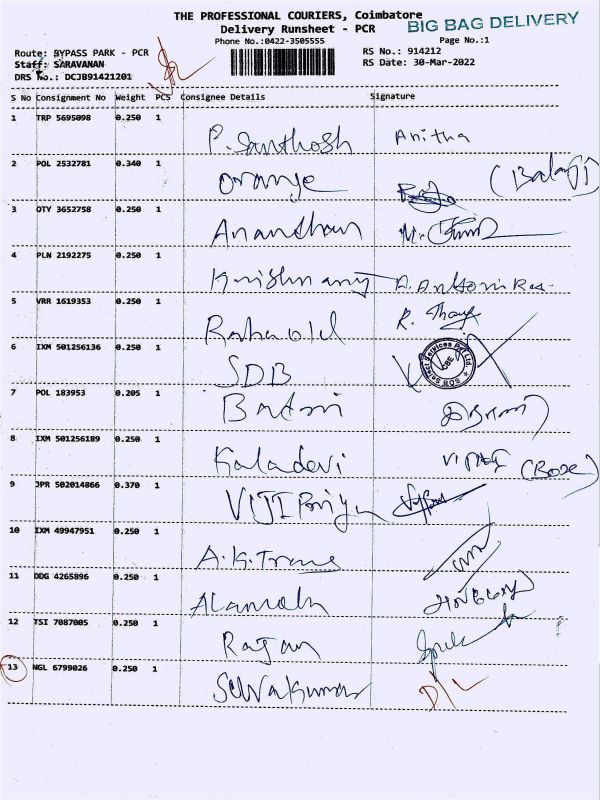 THE PROFESSIONAL COURIERS, Coimbatore
BIG BAG DELIVERY
Delivery Runsheet - PCR
Phone No.:0422-3505555
Page No.:1
Route: BYPASS PARK - PCR
RS No.: 914212
Staff: SARAVANAN
RS Date: 30-Mar-2022
DRS No.: DCJB91421201
S No Consignment No Weight PCS Consignee Details Signature
1 TRP 5695098 0.250 1
P. Santhosh Anitha
2 POL 2532781 0.340 1
Orange (Balaji)
3 OTY 3652758 0.250 1
Anandhan
4 PLN 2192275 0.250 1
5 VRR 1619353 0.250 1
6 IXM 501256136 0.250 1
SDB
7 POL 183953 0.205 1
Badri
8 IXM 501256189 0.250 1
Kaladevi
9 JPR 502014866 0.370 1
VIJI Priya
10 IXM 49947951 0.250 1
A.K. Trans
11 DDG 4265896 0.250 1
12 TSI 7087005 0.250 1
Rajan
13 NGL 6799026 0.250 1
Selvakumar D/L